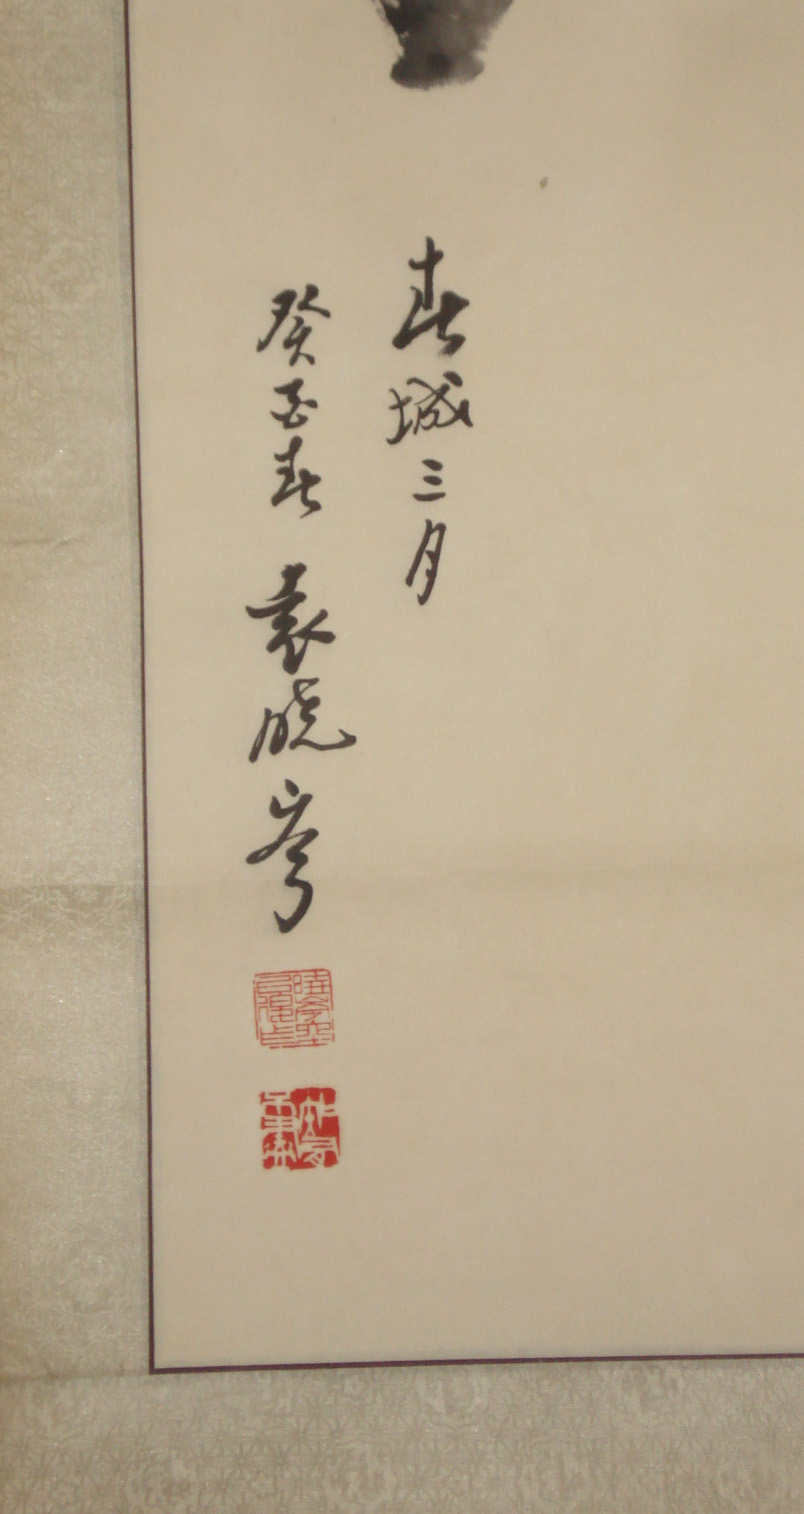 春城三月
癸酉春 袁晓岑